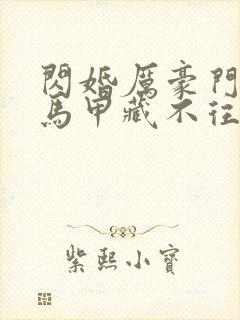 閃婚厲豪門
馬甲藏不往
紫熙小寶